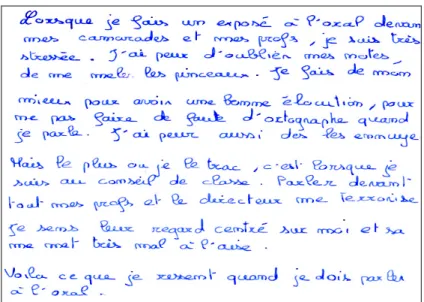 Lorsque je fais un exposé à l'oral devan
mes camarades et mes profs, je suis très
stressée. J'ai peur d'oublier mes motes,
de me meler les pinceaux. Je fais de mon
mieux pour avoir une bonne élocution, pour
me pas faire de faute d'ortographe quand
je parle. J'ai peur aussi des les ennuye
Mais le plus ou je le trac, c'est lorsque je
suis au conseil de classe. Parler devant
tout mes profs et le directeur me terrorise
Je sens leur regard centré sur moi et sa
me met très mal à l'aise.
Voila ce que je ressent quand je dois parler
à l'oral.